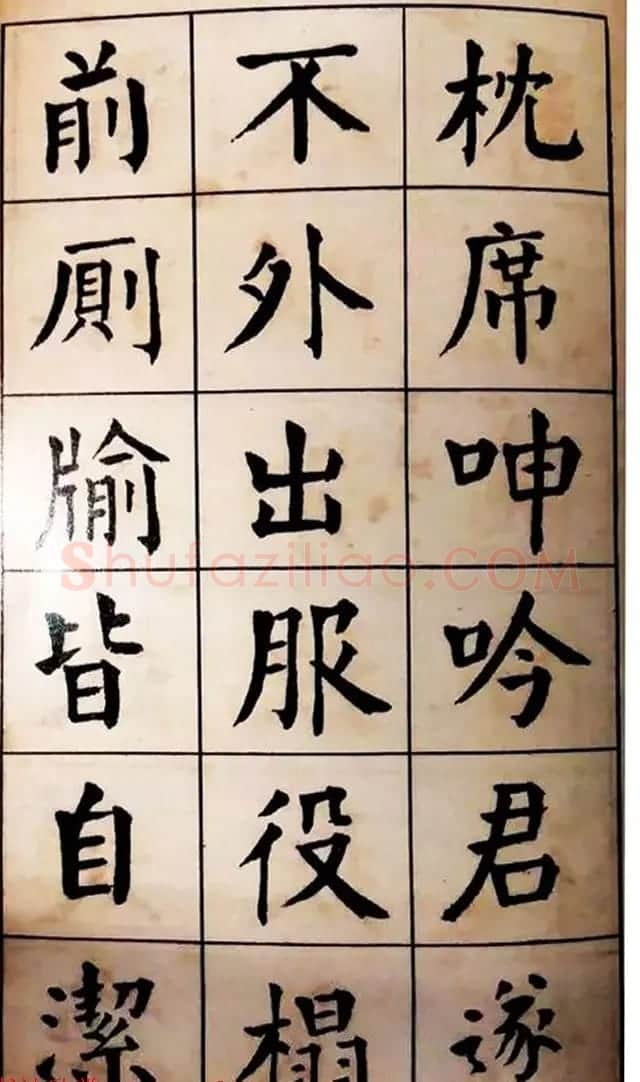 枕席呻吟君遂
不外出服役榻
前厠牏皆自潔
Shufaziliao.COM